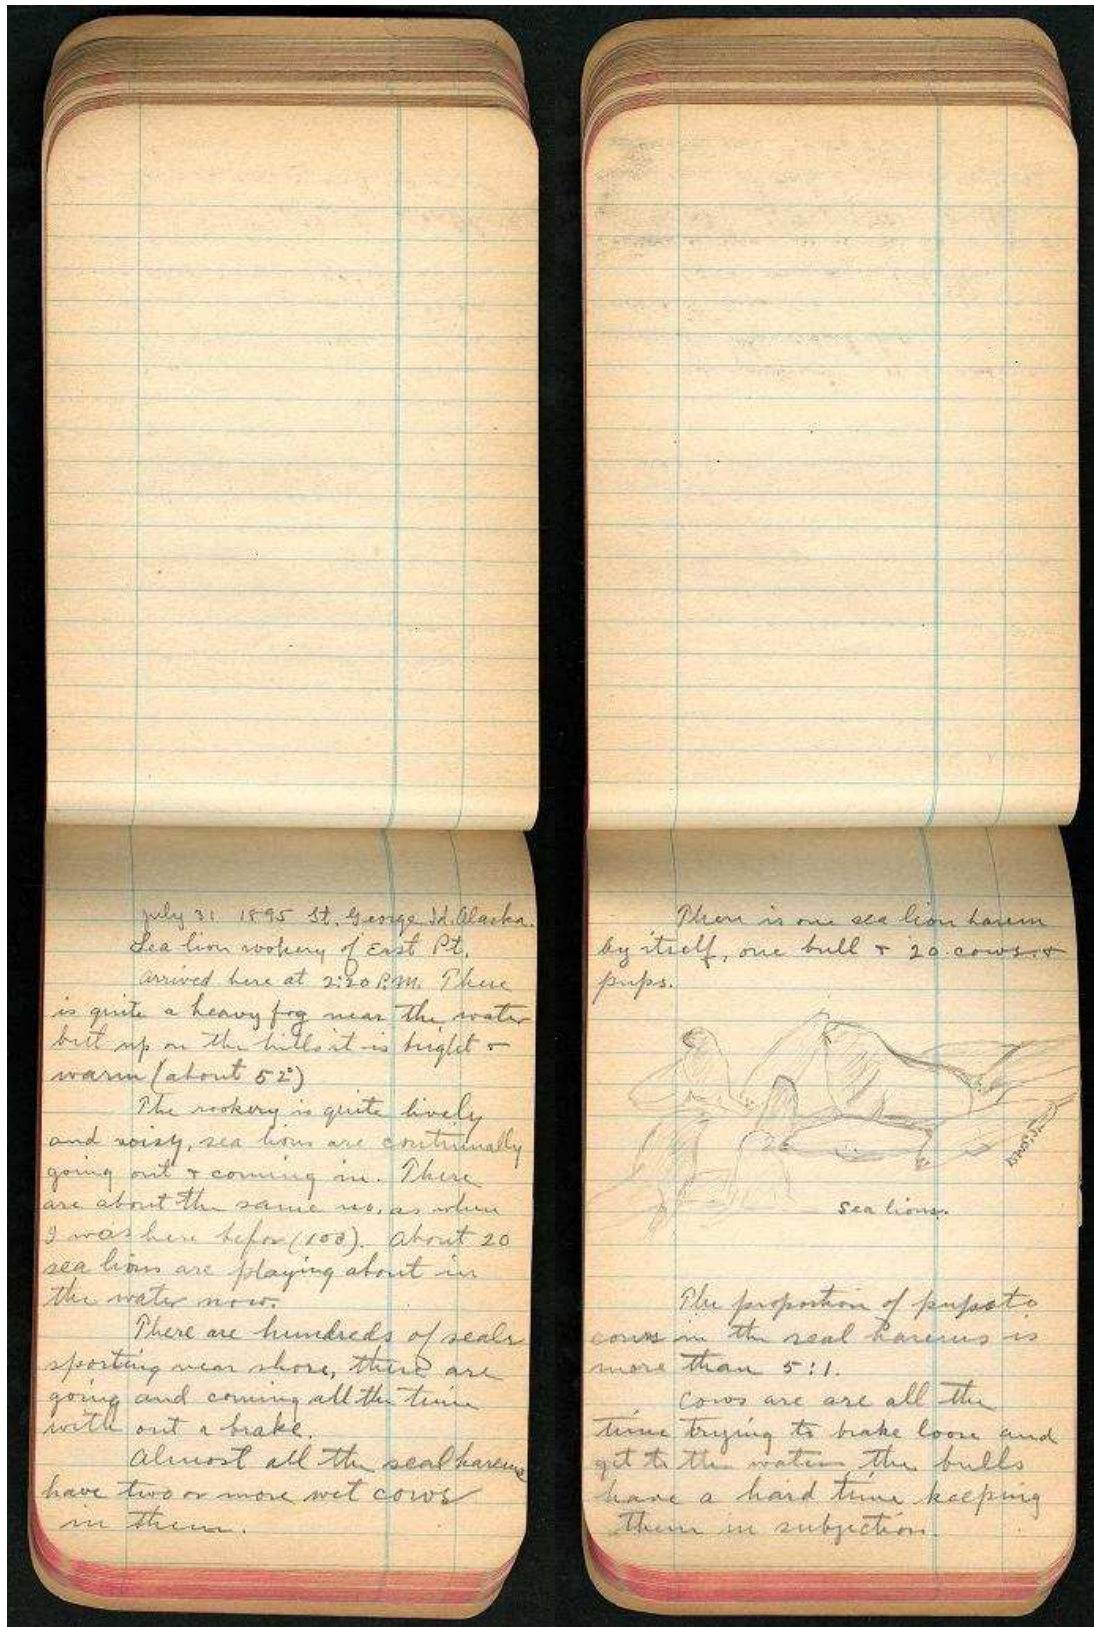 July 31 1895 St. George Id. Alaska.
Sea lion rookery of East Pt.
Arrived here at 2:20 P.M. There
is quite a heavy fog near the water
but up on the hills it is bright &
warm (about 52°)
The rookery is quite lively
and noisy, sea lions are continually
going out & coming in. There
are about the same no. as when
I was here befor (100). About 20
sea lions are playing about in
the water now.
There are hundreds of seals
sporting near shore, there are
going and coming all the time
with out a brake.
Almost all the seal harems
have two or more wet cows
in them.
There is one sea lion harem
by itself, one bull & 20 cows &
pups.
Sea lions.
The proportion of pups to
cows in the seal harems is
more than 5:1.
Cows are are all the
time trying to brake loose and
get to the water the bulls
have a hard time keeping
them in subjection.